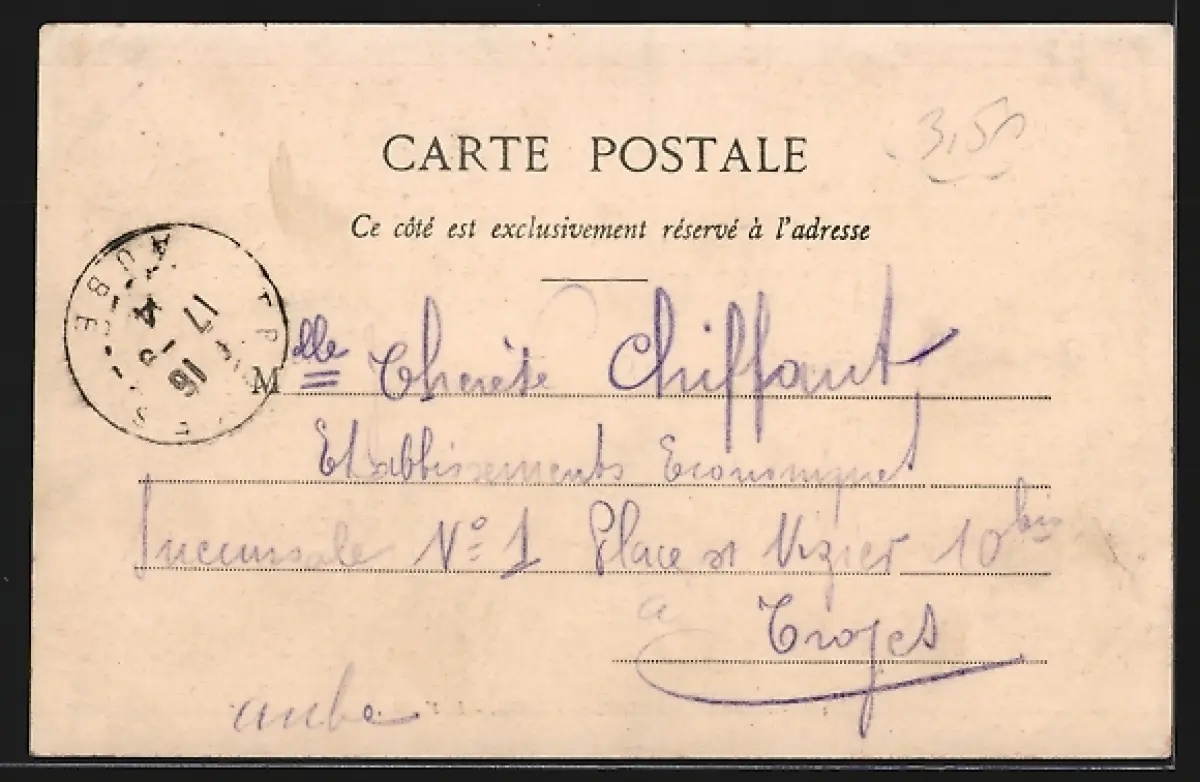 CARTE POSTALE
3,50
Ce côté est exclusivement réservé à l'adresse
Mlle Thérèse Chiffaut
Etablissements Economiques
Succursale No 1 Place St Nizier 10 bis
a Troyes
aube
TROYES AUBE
17
4
16